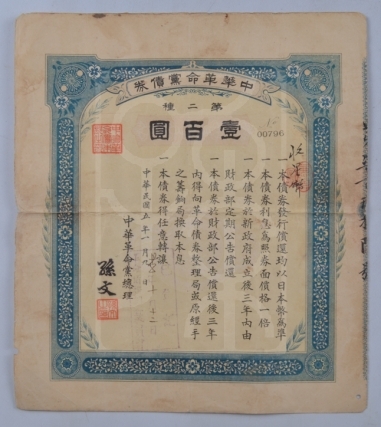 中華革命黨債券
第二種
壹百圓
00796
一本債券發行償還均以日本幣為準
一本債券利息為照券面價格一倍
一本債券於新政府成立後三年內由
財政部定期公告償還
一本債券於財政部公告償還後三年
內得向革命債券整理局或原經手
之籌餉局換取本息
一本債券得任意轉讓
中華民國五年一月 日
中華革命黨總理
孫文